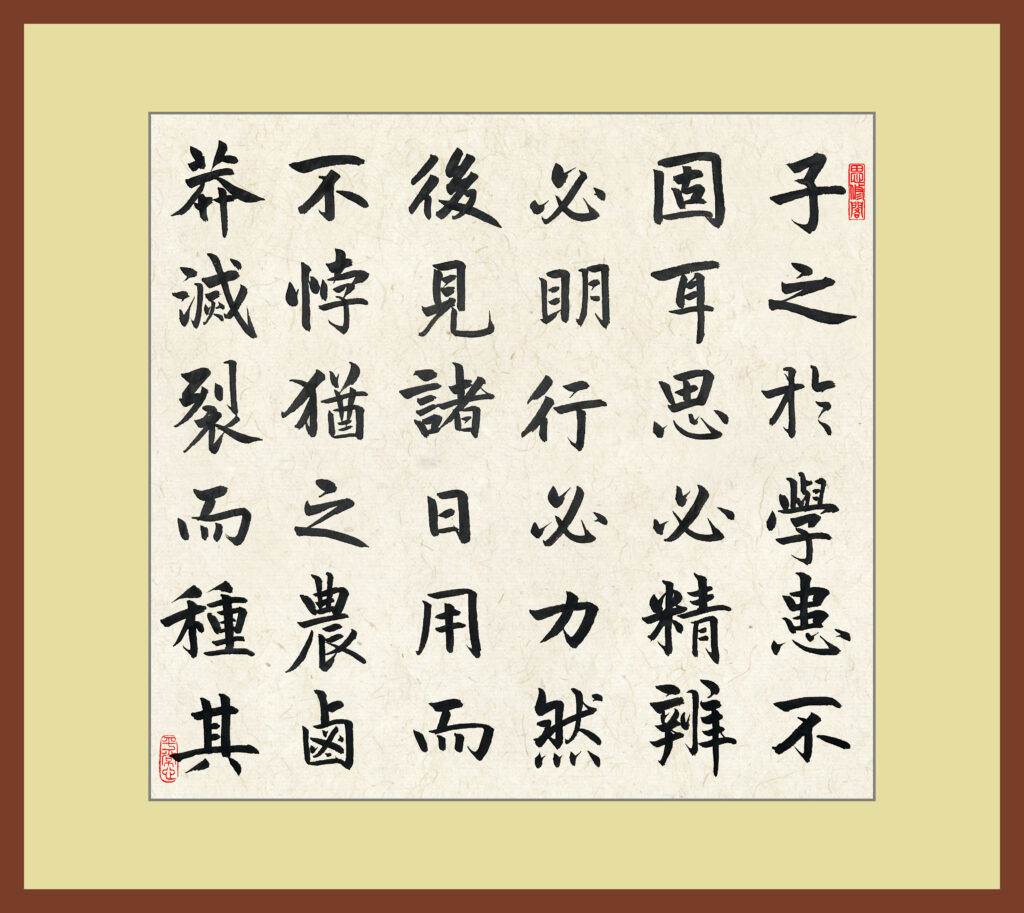 思修閣
子之於學患不
固耳思必精辨
必明行必力然
後見諸日用而
不悖猶之農鹵
莽滅裂而種其
平常心